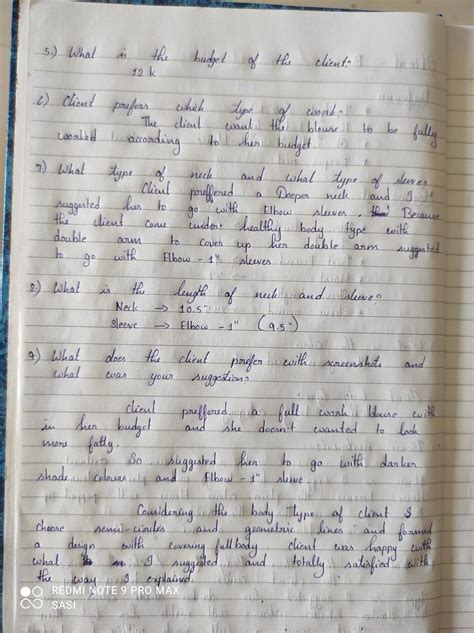 5.) What is the budget of the client?
12 k
6) Client prefers which type of work?
The client want the blouse to be fully
worked according to her budget
7) What type of neck and what type of sleeves
Client preffered a Deeper neck and I
suggested her to go with Elbow sleeves. Because
the client come under healthy body type with
double arm to cover up her double arm suggested
to go with Elbow - 1" sleeves
8.) What is the length of neck and sleeve?
Neck → 10.5"
Sleeve → Elbow - 1" (9.5")
9) What does the client prefer with screenshots and
what was your suggestion?
Client preffered a full work blouse with
in her budget and she doesn't wanted to look
more fatty.
So suggested her to go with darker
shade colours and Elbow - 1" sleeve
Considering the body Type of client I
choose semi-circles and geometric lines and formed
a design with covering full body client was happy with
what I suggested and totally satisfied with
the way I explained.
REDMI NOTE 9 PRO MAX
SASI